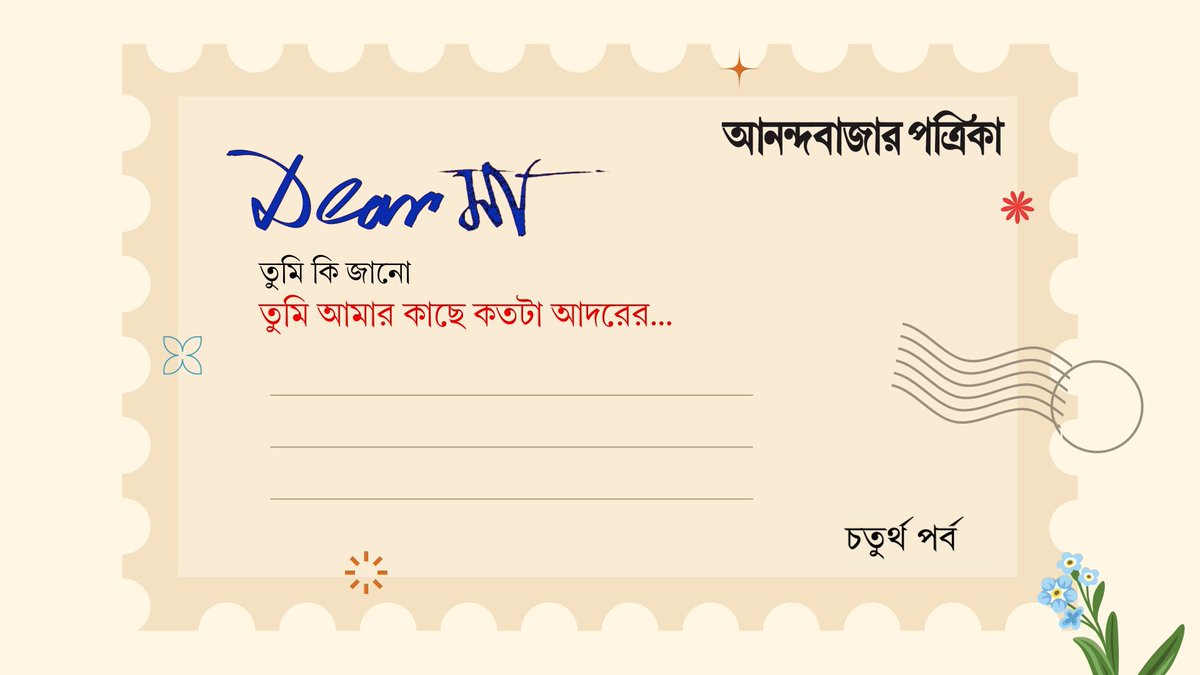 আনন্দবাজার পত্রিকা
Dear মা
তুমি কি জানো
তুমি আমার কাছে কতটা আদরের...
চতুর্থ পর্ব